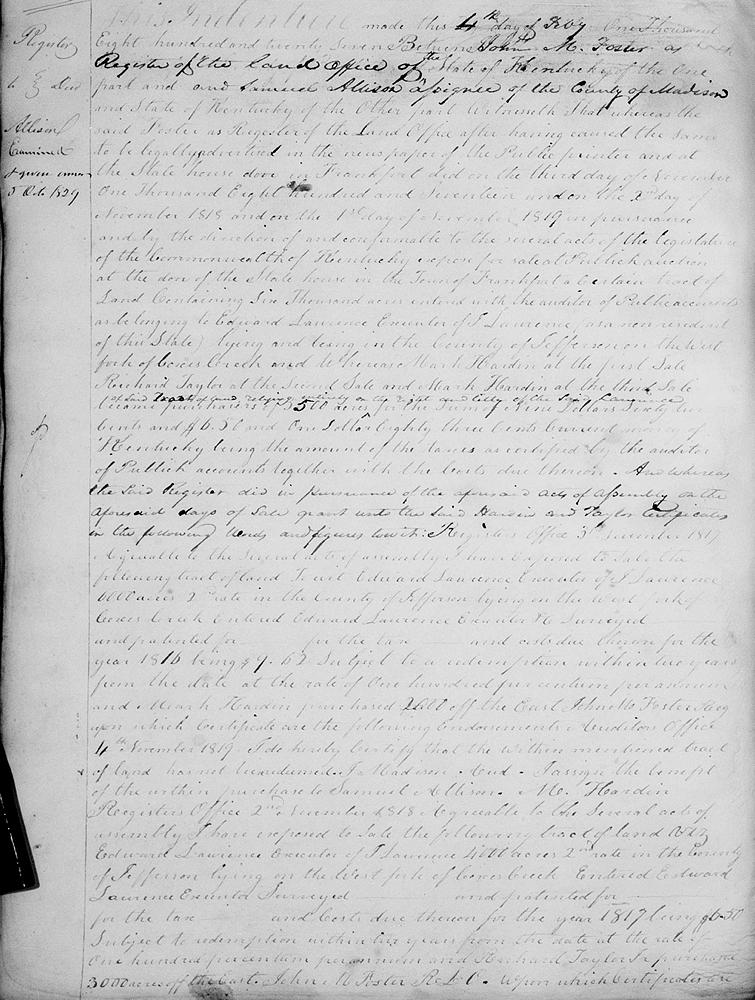 Register
to } Deed
Allison
Examined
& given owner
5 Octo 1829
This Indenture made this 4th day of Feby One Thousand
Eight hundred and twenty Seven Between John M. Foster as
Register of the land office of the State of Kentucky of the One
part and and Samuel Allison assignee of the County of Madison
and State of Kentucky of the Other part Witnesseth That whereas the
said Foster as Regester of the Land Office after having caused the same
to be legally advertised in the newspaper of the Public printer and at
the State house door in Frankfort did on the third day of November
One Thousand Eight hundred and Seventeen and on the 2nd day of
November 1818 and on the 1st day of November 1819 in pursuance
and by the direction of and conformable to the several acts of the legislature
of the Commonwealth of Kentucky expose for sale at Publick auction
at the door of the State house in the Town of Frankfort a Certain tract of
Land Containing Six Thousand acres entered with the auditor of Public accounts
as belonging to Edward Lawrence Executor of T Lawrence (as a nonresident
of this State) lying and being in the County of Jefferson on the West
fork of Coxes Creek and Whereas Mark Hardin at the first Sale
Reichard Taylor at the Second Sale and Mark Hardin at the third Sale
of said Tract of land, relying entirely on the right and title of the said Lawrence
became purchasers of 5500 acres for the Sum of Nine Dollars Sixty two
Cents and $6.50 and One Dollar Eighty three Cents Current money of
Kentucky being the amount of the taxes as certified by the auditor
of Publick accounts together with the Costs due thereon. And whereas
the Said Register did in pursuance of the aforesaid acts of assembly on the
aforesaid days of Sale grant unto the Said Hardin and Taylor Certificates
in the following Words and figures towit: Registers Office 3d November 1817
Agreeable to the Several acts of assembly I have Exposed to Sale the
following tract of land To wit Edward Lawrence Executor of T Lawrence
6000 acres 2nd rate in the County of Jefferson lying on the West fork of
Coxes Creek Entered Edward Lawrence Executor &c Surveyed
and patented for for the tax and costs due thereon for the
year 1816 being $9.62 Subject to a redemption within two years
from the date at the rate of One hundred per centum per annum
and Mark Hardin purchased 2000 off the East John M Foster Reg
upon which Certificate are the following Endorsements Auditors Office
4th November 1819. I do hereby Certify that the within mentioned tract
of land has not been redeemed. J. Madison. Aud. I assign the benefit
of the within purchase to Samuel Allison. M. Hardin
Registers Office 2nd November 1818 Agreeable to the Several acts of
assembly I have exposed to Sale the following tract of land Viz
Edward Lawrence Executor of T Lawrence 4000 acres 2nd rate in the County
of Jefferson lying on the West fork of Coxes Creek Entered Edward
Lawrence Executor Surveyed and patented for
for the tax and Costs due thereon for the year 1817 being $6.50
Subject to redemption within two years from the date at the rate of
One hundred per centum per annum and Richard Taylor Jr purchased
3000 acres off the East. John M Foster R L O. Upon which Certificates are